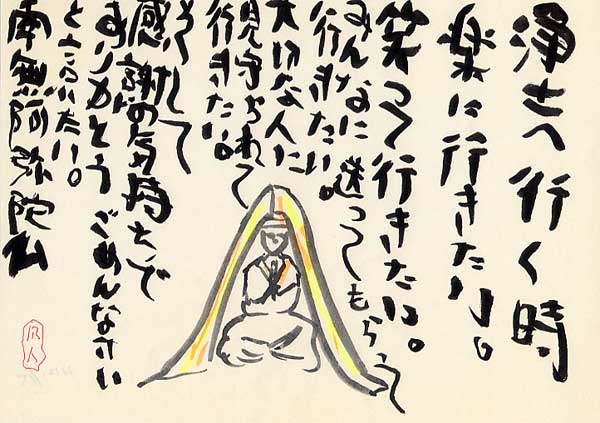 浄土へ行く時
楽に行きたい。
笑って行きたい。
みんなに送ってもらって
行きたい。
大切な人に
見守られて
行きたい。
そして
感謝の気持ちで
ありがとう ごめんなさい
と言いたい。
南無阿弥陀仏
凡人